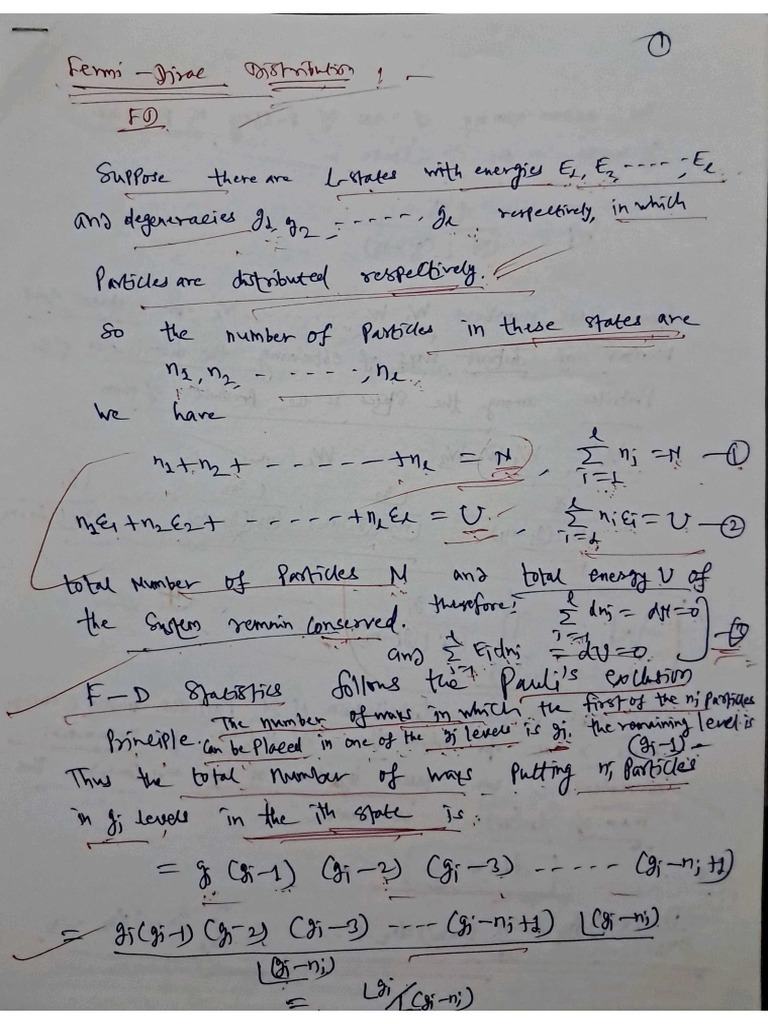 ①
Fermi-Dirac Distribution : -
FD
Suppose there are l-states with energies E₁, E₂, -----, Eₗ
and degeneracies g₁, g₂ ------, gₗ respectively, in which
Particles are distributed respectively.
So the number of Particles in these states are
n₁, n₂, ------, nₗ
We have
n₁+n₂+ ------- +nₗ = N , Σ_{i=1}^{l} nᵢ = N —①
n₁ε₁+n₂ε₂+ ------ +nₗεₗ = U , Σ_{i=1}^{l} nᵢεᵢ = U —②
total Number of Particles N and total energy U of
the System remain conserved. therefore: Σ_{i=1}^{l} dnᵢ = dN = 0
and Σ_{i=1}^{l} εᵢdnᵢ = dU = 0 —③
F-D Statistics follows the Pauli's exclusion
Principle. The number of ways in which the first of the nᵢ particles
can be placed in one of the gᵢ levels is gᵢ. the remaining level is
(gᵢ-1) -
Thus the total number of ways putting nᵢ Particles
in gᵢ levels in the ith state is.
= gᵢ (gᵢ-1) (gᵢ-2) (gᵢ-3) ------ (gᵢ-nᵢ+1)
= gᵢ(gᵢ-1) (gᵢ-2) (gᵢ-3) ---- (gᵢ-nᵢ+1) |(gᵢ-nᵢ)
|(gᵢ-nᵢ)
= |gᵢ / |(gᵢ-nᵢ)